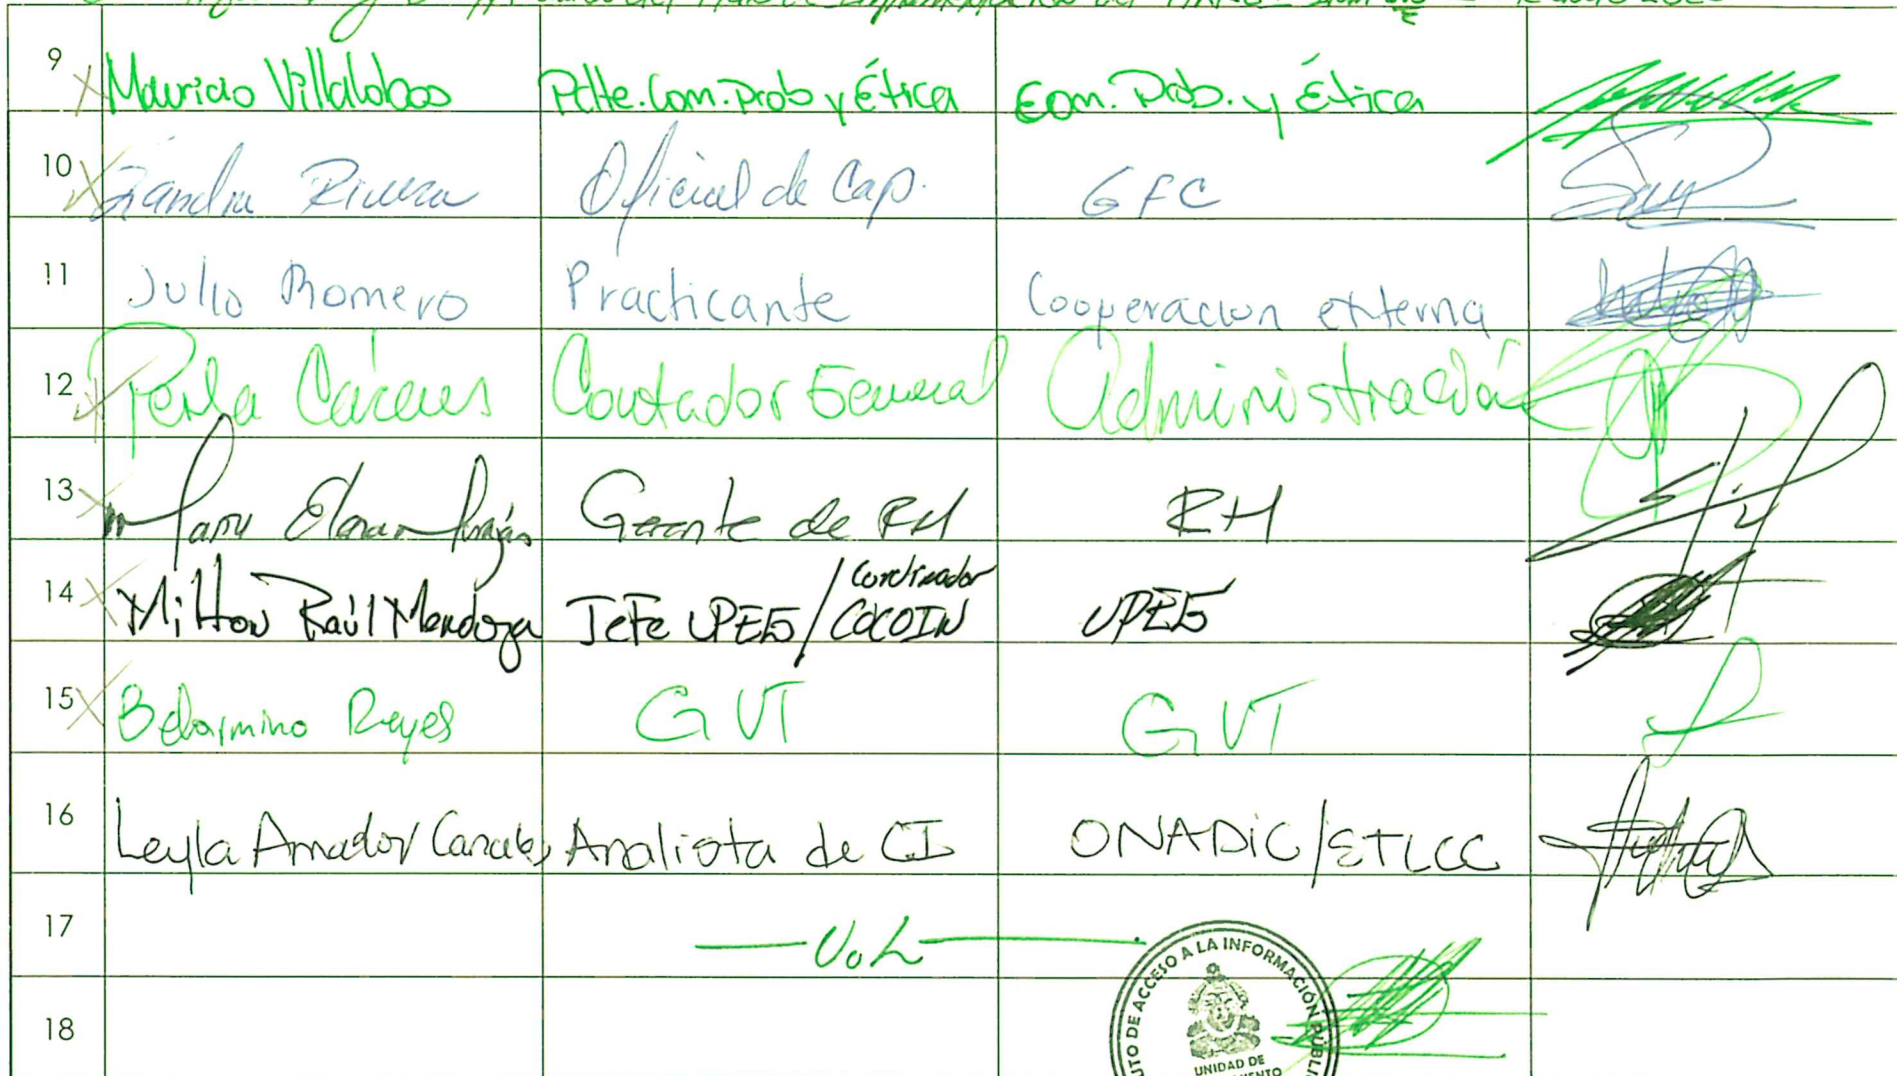 9 Mauricio Villalobos Pdte. Com. Prob y Ética Com. Prob. y Ética
10 Sandra Rivera Oficial de Cap. GFC
11 Julio Romero Practicante Cooperacion externa
12 Perla Cáceres Contador General Administración
13 Elena Gerente de RH RH
14 Milton Raúl Mendoza Jefe UPEG / Coordinador COCOIN UPEG
15 Belarmino Reyes GVT GVT
16 Leyla Amador Canales Analista de CI ONADIC/ETLCC
17
18
UTO DE ACCESO A LA INFORMACIÓN PÚBLI
UNIDAD DE